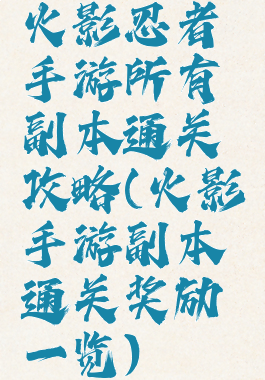 火影忍者
手游所有
副本通关
攻略(火影
手游副本
通关奖励
一览)